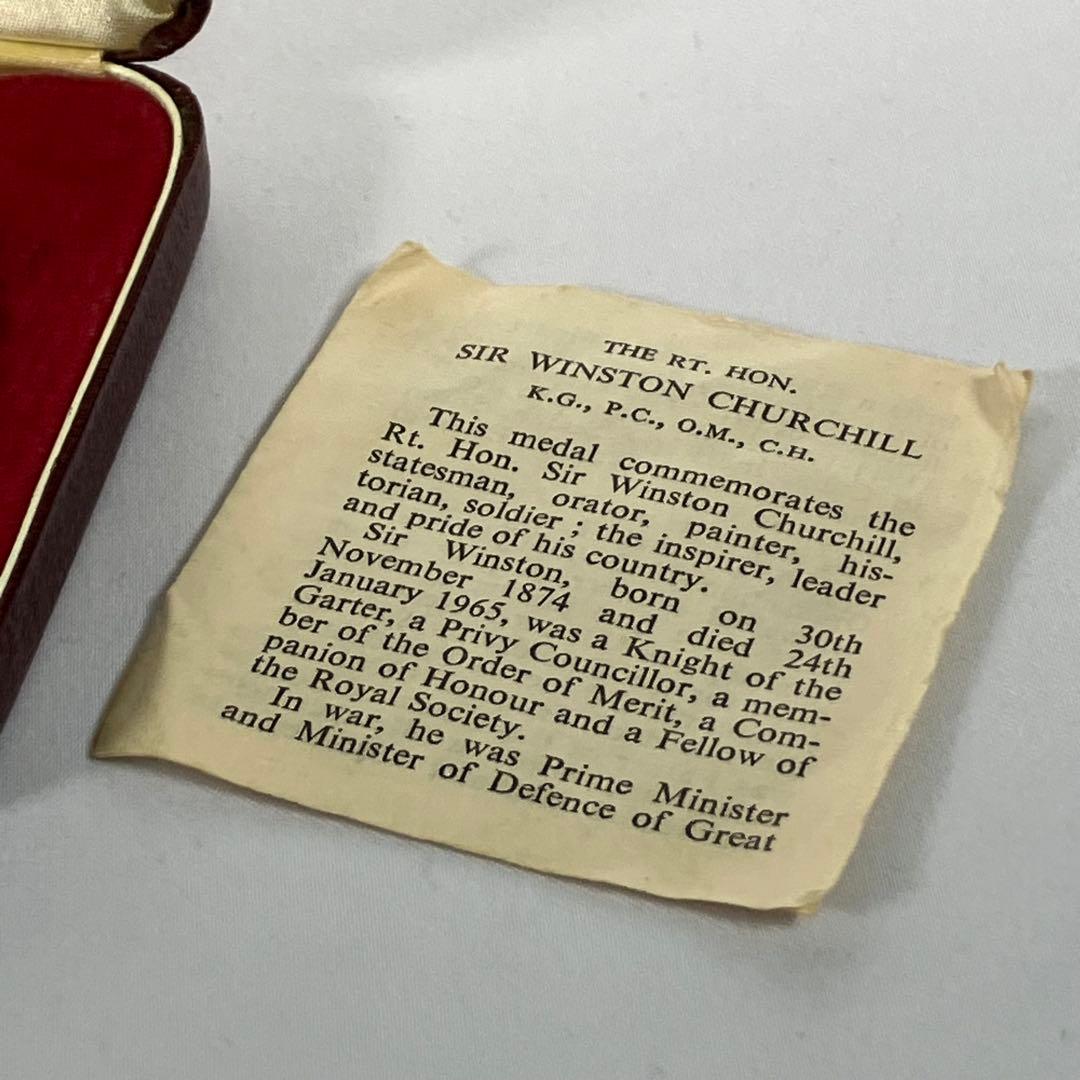 THE RT. HON.
SIR WINSTON CHURCHILL
K.G., P.C., O.M., C.H.
This medal commemorates the
Rt. Hon. Sir Winston Churchill,
statesman, orator, painter, his-
torian, soldier ; the inspirer, leader
and pride of his country.
Sir Winston, born on 30th
November 1874 and died 24th
January 1965, was a Knight of the
Garter, a Privy Councillor, a mem-
ber of the Order of Merit, a Com-
panion of Honour and a Fellow of
the Royal Society.
In war, he was Prime Minister
and Minister of Defence of Great